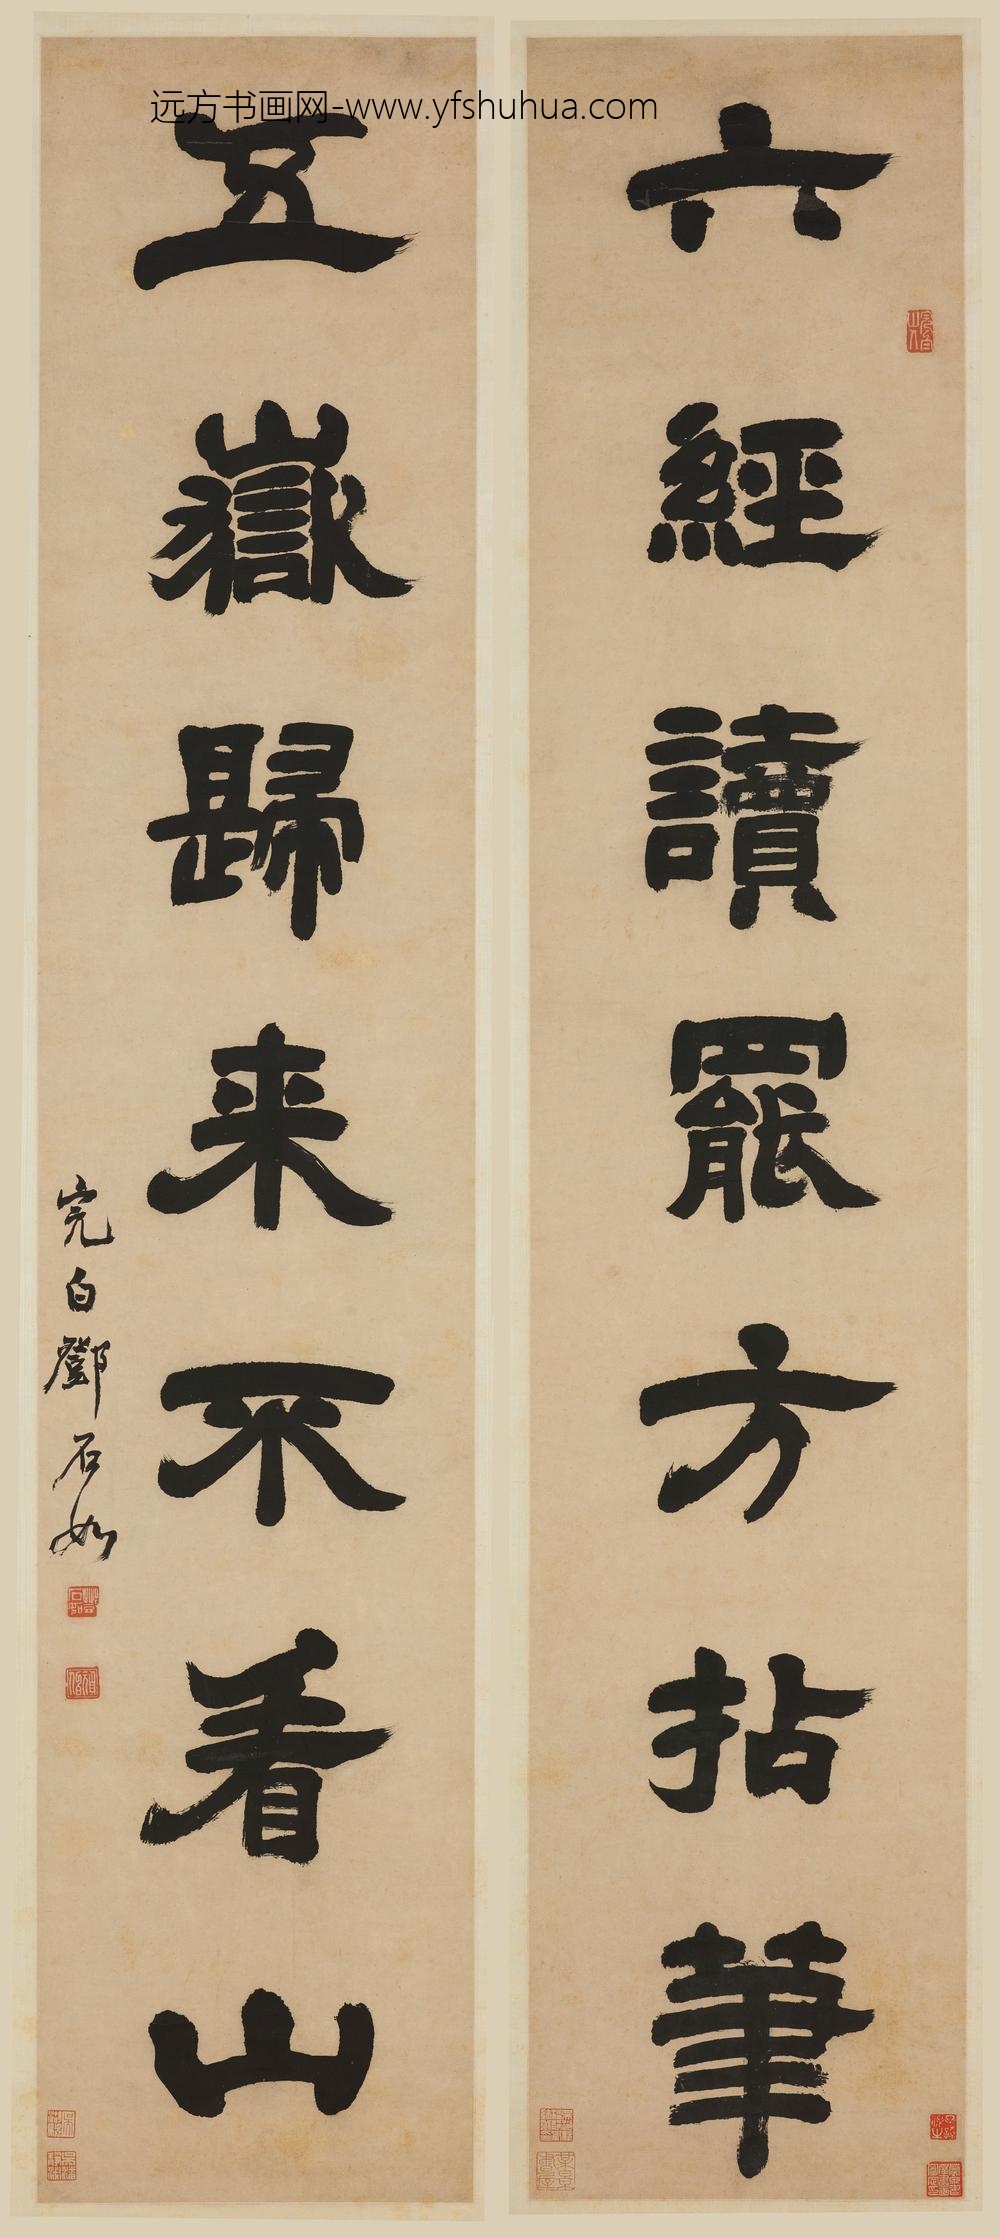 远方书画网-www.yfshuhua.com
六經讀罷方拈筆
五嶽歸来不看山
完白鄧石如